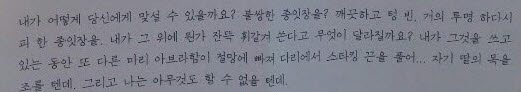 내가 어떻게 당신에게 맞설 수 있을까요? 불쌍한 종잇장을? 깨끗하고 텅 빈, 거의 투명 하다시
피 한 종잇장을. 내가 그 위에 뭔가 잔뜩 휘갈겨 쓴다고 무엇이 달라질까요? 내가 그것을 쓰고
있는 동안 또 다른 미리 아브라함이 절망에 빠져 다리에서 스타킹 끈을 풀어... 자기 딸의 목을
조를 텐데, 그리고 나는 아무것도 할 수 없을 텐데.